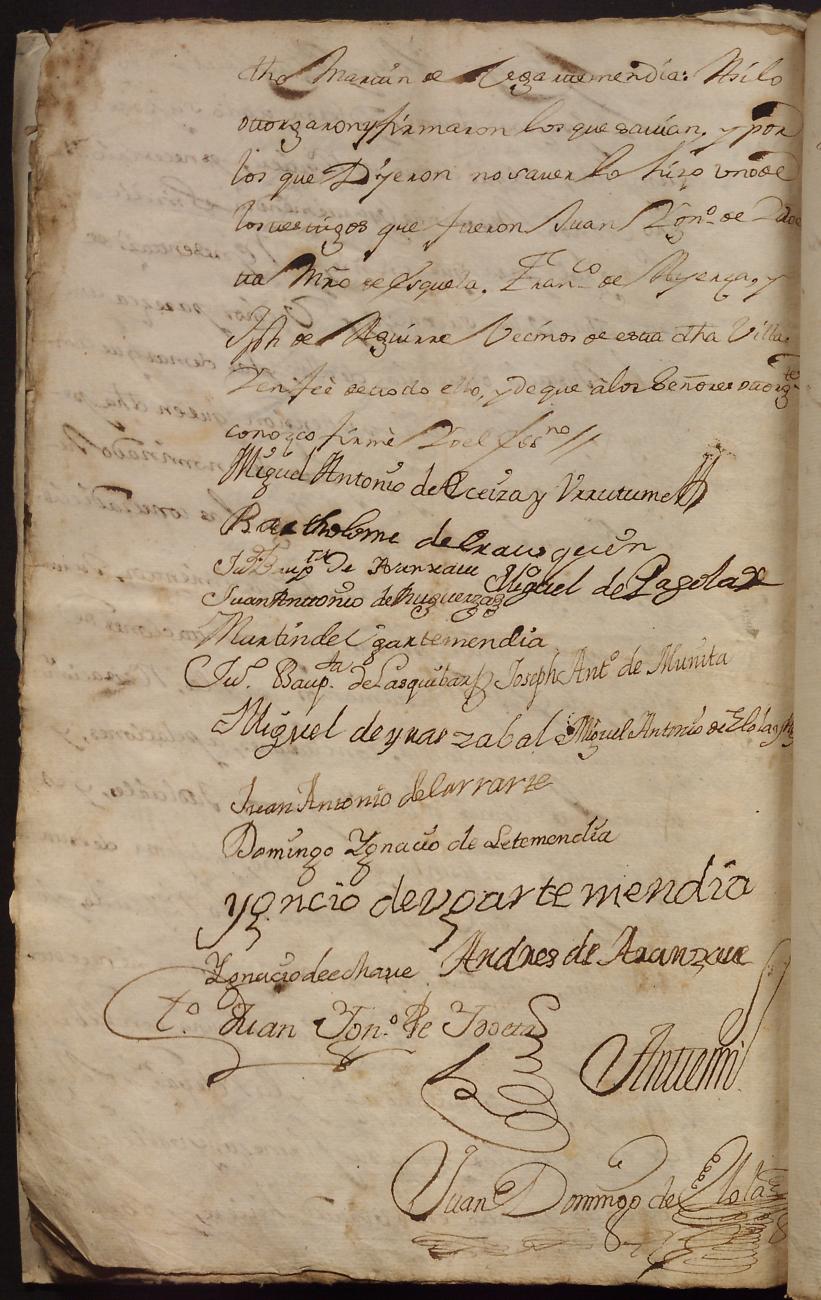 dho Martin de Ugartemendia: Asilo
otorgaron y firmaron los que savian, y por
los que Dijeron no saver lo hizo uno de
los testigos que fueron Juan Ygn.º de
tta Mr̃o de Esquela. Fran.co de Ayerza, y
Jph de Aguirre Vecinos de esta dha Villa
Zen feè de todo ello, y de que à los Señores otorg.tes
conozco firmè Yo el Ess.no //
Miguel Antonio de Eceiza y Urrutume
Bartholome de Eraus quin
Ju.º Baup.ta De Aranzave Miguel de Lasolas
Juan Antonio de Auguerza
Martin de Ugartemendia
Ju.º Baup.ta de Lasquibar Joseph Ant.º de Munita
Miguel de ynar zabal Miguel Antonio de Elola
Juan Antonio de larrarte
Domingo Ygnacio de Letemendia
ygncio de vgarte mendia
Ygnacio de echave Andres de Aranzave
t.º Juan Ygn.º de
Anttemi
Juan Domingo de Elola